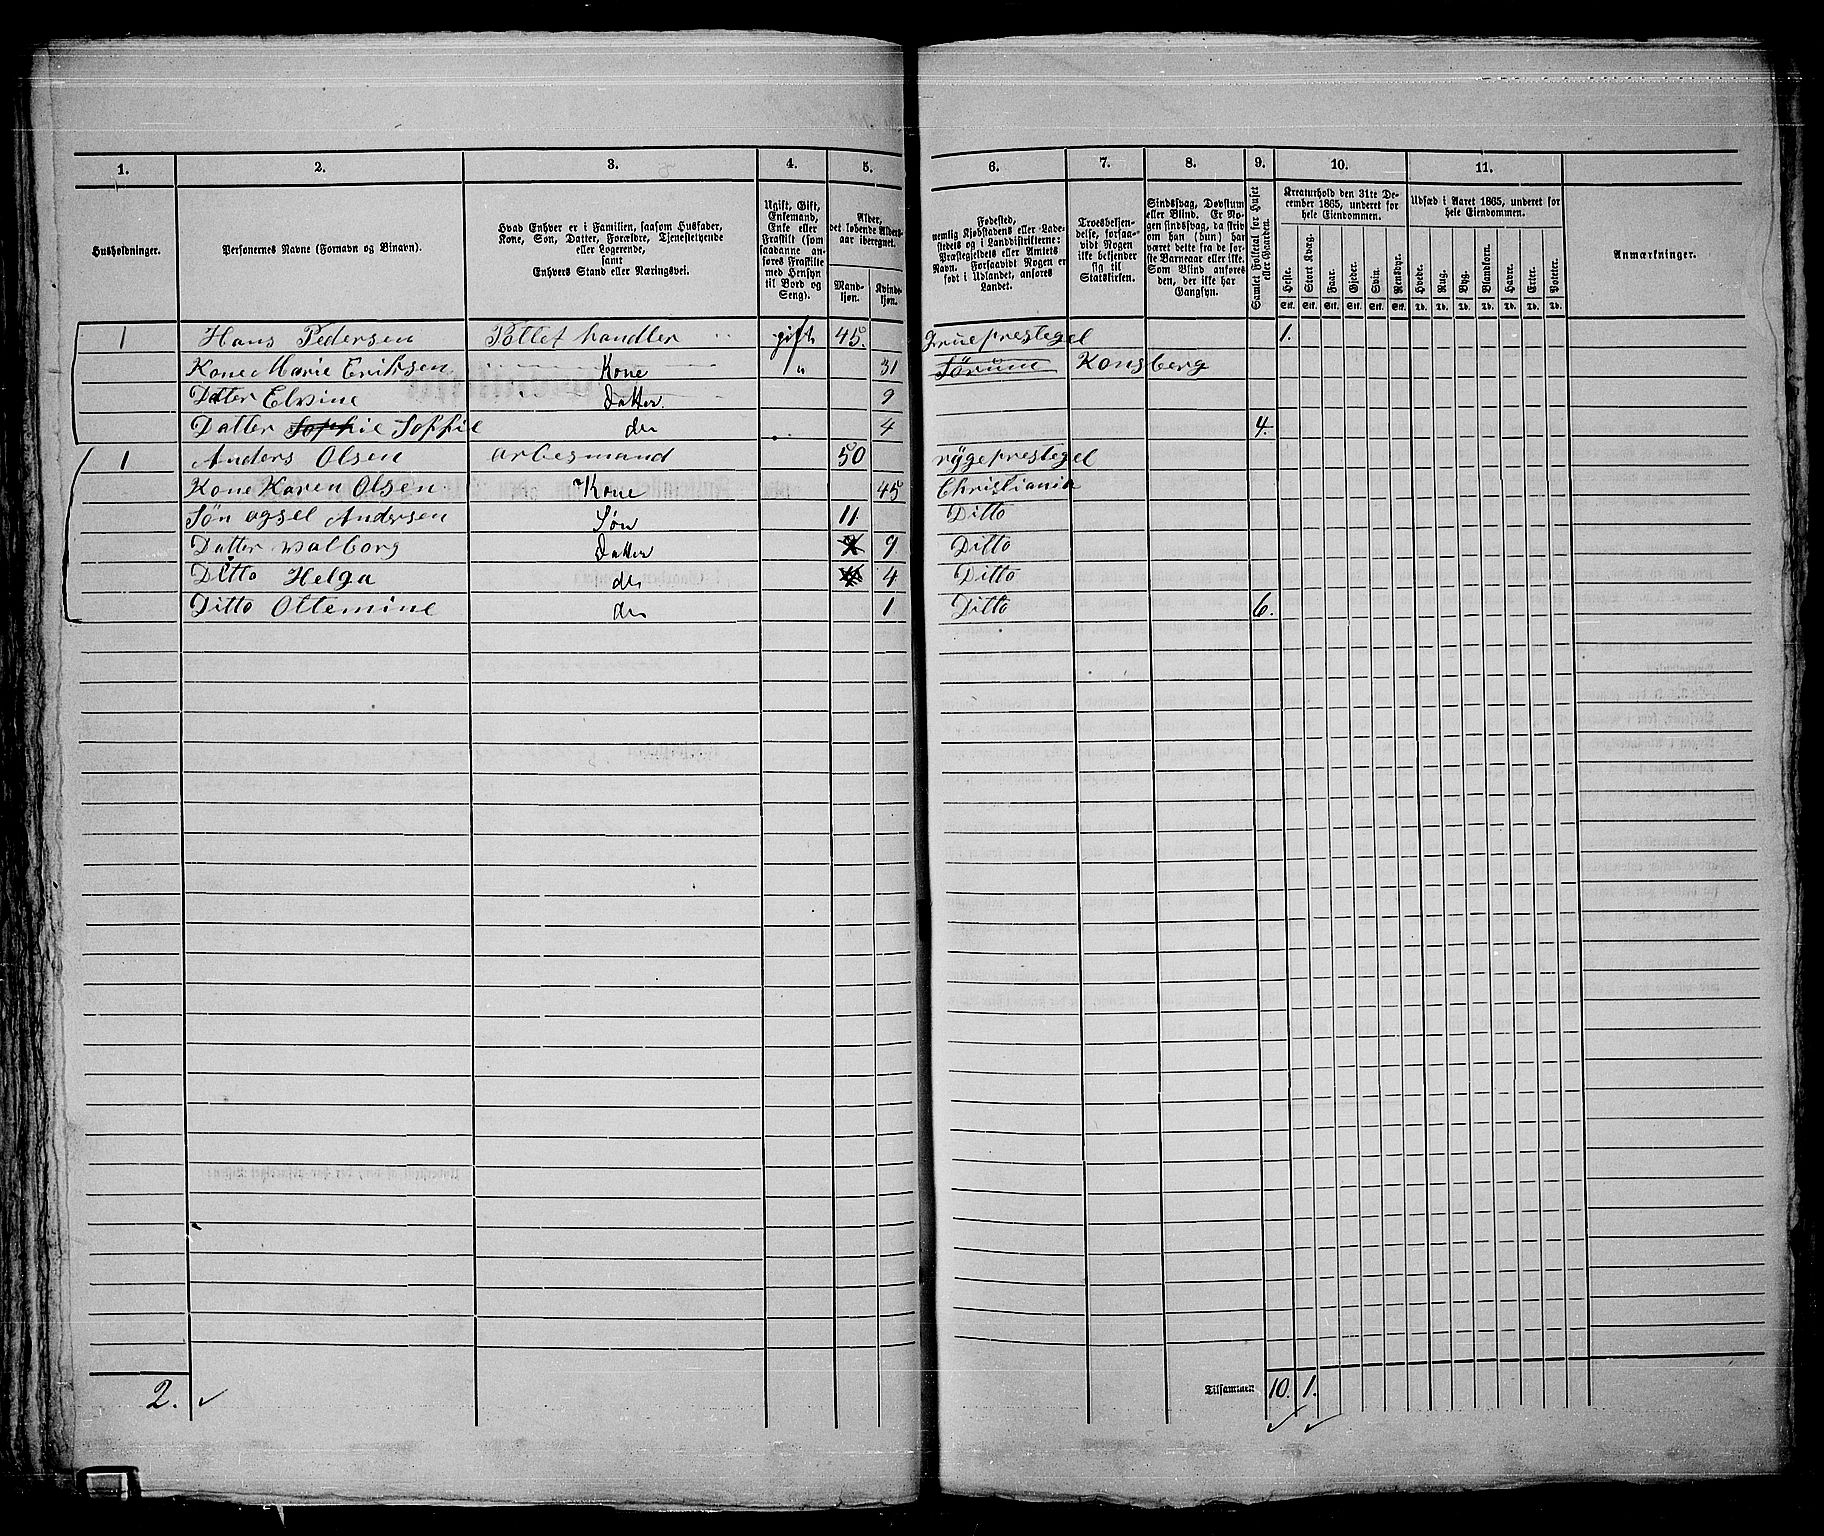 1. 2. 3. 4. 5. 6. 7. 8. 9. 10. 11.
Husholdninger.
Personernes Navne (Fornavn og Binavn).
Hvad Enhver er i Familien, saasom Husfader,
Kone, Søn, Datter, Forældre, Tjenestetyende
eller Logerende,
samt
Enhvers Stand eller Næringsvei.
Ugift, Gift,
Enkemand,
Enke eller
Fraskilt (som
saadanne an-
føres Fraskilte
med Hensyn
til Bord og
Seng).
Alder,
det løbende Alders-
aar iberegnet.
Mand-
kjøn.
Kvinde-
kjøn.
Fødested,
nemlig Kjøbstadens eller Lade-
stedets og i Landdistrikterne:
Præstegjeldets eller Amtets
Navn. Forsaavidt Nogen er
født i Udlandet, anføres
Landet.
Troesbekjen-
delse, forsaa-
vidt Nogen
ikke bekjender
sig til
Statskirken.
Sindssvag, Døvstum
eller Blind. Er No-
gen sindssvag, da skriv
om han (hun) har
været dette fra de før-
ste Barneaar eller ikke.
Som Blind anføres
den, der ikke har
Gangsyn.
Samlet Folketal for Huset
eller Gaarden.
Kreaturhold den 31te De-
cember 1865, underet for
hele Eiendommen.
Heste. Stort Kvæg. Faar. Gjeder. Svin. Rensdyr.
Stk. Stk. Stk. Stk. Stk. Stk.
Udsæd i Aaret 1865, underet for
hele Eiendommen.
Hvede. Rug. Byg. Blandkorn. Havre. Erter. Poteter.
Td. Td. Td. Td. Td. Td. Td.
Anmærkninger.
1 Hans Pedersen Pottet handler gift 45. Grueprestegel 1.
Kone Marie Eriksen Kone " 31 Sørum Konsberg
Datter Elvine Datter. 9
Datter Sophie Sophie do 4 4.
1 Anders Olsen arbesmand 50 rygeprestegel
Kone Karen Olsen Kone 45 Christiania
Søn agsel Andersen Søn 11 Ditto
Datter Walborg Datter 9 Ditto
Ditto Helga do 4 Ditto
Ditto Ottemine do 1 Ditto 6.
2. Tilsammen 10. 1.